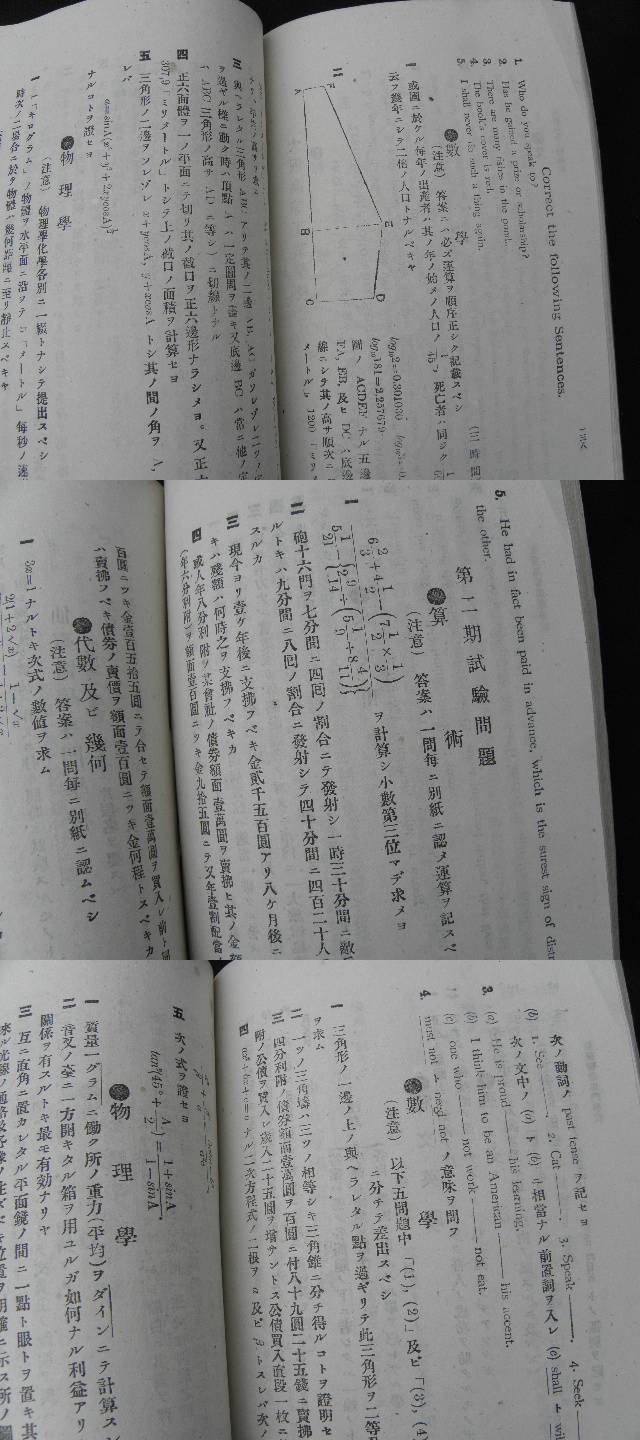 Correct the following Sentences.
1. Who do you speak to?
2. Has he gained a prize or scholarship?
3. There are many fishes in the pond.
4. The book's cover is red.
5. I shall never do such a thing again.
●數 學
(注意) 答案ハ必ズ運算ヲ順序正シク記載スベシ
一 或國ニ於ケル每年ノ出產者ハ其ノ年ノ始メノ人口ノ 1/45 死亡者ハ同ジク
云フ幾年ニシテ二倍ノ人口トナルベキヤ
log₁₀2=0.301030
log₁₀181=2.257679
二
A
F
B
E
C
D
圖ノ ACDEF ナル五邊
FA, EB, 及ビ DC ハ底邊
線ニシテ其ノ高サ順次ニ
メートル」 1200 「ミリメ
三 與ヘラレタル三角形 ABC アリテ其ノ二邊 AB, AC
ヲ過ギル樣ニ動ク時ハ頂點 A ハ一定圓周ヲ畫キ又底邊 BC ハ常ニ他ノ定
ABC 三角形ノ高サ AD ニ等シ)ニ切線トナル
四 正六面體ヲ一ノ平面ニテ切リ其ノ截口ヲ正六邊形ナラシメヨ。又正六
307,9「ミリメートル」トシテ上ノ截口ノ面積ヲ計算セヨ
五 三角形ノ二邊ヲソレゾレ x+ycosA, y+xcosA トシ其ノ間ノ角ヲ A
レバ
ナルコトヲ證セヨ
●物 理 學
(注意) 物理學化學各別ニ一綴トナシテ提出スベシ
一 一「キログラム」ノ物體ヲ水平面ニ沿ヲテ一「メートル」每秒ノ速
時次ノ二場合ニ於テ物體ハ幾何距離ニ至リ靜止スベキヤ
5. He had in fact been paid in advance, which is the surest sign of distr
the other.
第十一期試驗問題
●算 術
(注意) 答案ハ一問每ニ別紙ニ認メ運算ヲ記スベ
一
ヲ計算シ小數第三位マデ求メヨ
二 砲十六門ヲ七分間ニ四回ノ割合ニテ發射シ一時三十分間ニ敵
ルトキハ九分間ニ八回ノ割合ニ發射シテ四十分間ニ四百二十人
スルカ
三 現今ヨリ壹ケ年後ニ支拂フベキ金貳千五百圓アリ八ケ月後ニ
キハ殘額ハ何時之ヲ支拂フベキカ
四 或人年八分利附ヲ某會社ノ債券額面壹萬圓ヲ賣拂ヒ其ノ金額
(年六分利附)ヲ額面壹百圓ニツキ金九拾五圓ニテ又年壹割配當
百圓ニツキ金壹百五拾五圓ニテ合セテ額面壹萬圓ヲ買入レ前ト同
ハ賣拂フベキ債券ノ賣價ヲ額面壹百圓ニツキ金何程トスベキカ
●代數及ビ幾何
(注意) 答案ハ一問每ニ別紙ニ認ムベシ
一 3a=1 ナルトキ次式ノ數値ヲ求ム
次ノ動詞ノ past tense ヲ記セヨ
1. See ——. 2. Cut ——. 3. Speak ——. 4. Seek ——
3. 次ノ文中ノ (a) ト (b) ニ相當ナル前置詞ヲ入レ (c) shall ト wil
(a) He is proud —— his learning.
(b) I think him to be an American —— his accent.
(c) one who —— not work —— not eat.
4. must not ト need not ノ意味ヲ問フ
●數 學
(注意) 以下五問題中「(1), (2)」及ビ「(3), (4)
ニ分チテ差出スベシ
一 三角形ノ一邊ノ上ノ與ヘラレタル點ヲ過ギリテ此三角形ヲ二等
ヲ求ム
二 一ツノ三角壔ハ三ツノ相等シキ三角錐ニ分チ得ルコトヲ證明セ
三 四分利附ノ債券額面壹萬圓ヲ百圓ニ付八十九圓二十五錢ニ賣拂
附ノ公債ヲ買入レ歲入二十五圓ヲ增サントス公債買入直段一枚ニ
四 ax²+bx+c=0 ナル二次方程式ノ二根ヲ α 及ビ β トスレバ次ノ
五 次ノ式ヲ證セヨ
tan²(45°+A/2)=(1+sinA)/(1−sinA).
●物 理 學
一 質量一グラムニ働ク所ノ重力(平均)ヲダインニテ計算ス
二 音叉ノ臺ニ一方開キタル箱ヲ用ユルガ如何ナル利益アリ
關係ヲ有スルトキ最モ有効ナリヤ
三 互ニ直角ニ置カレタル平面鏡ノ間ニ一點ト眼トヲ置キ其